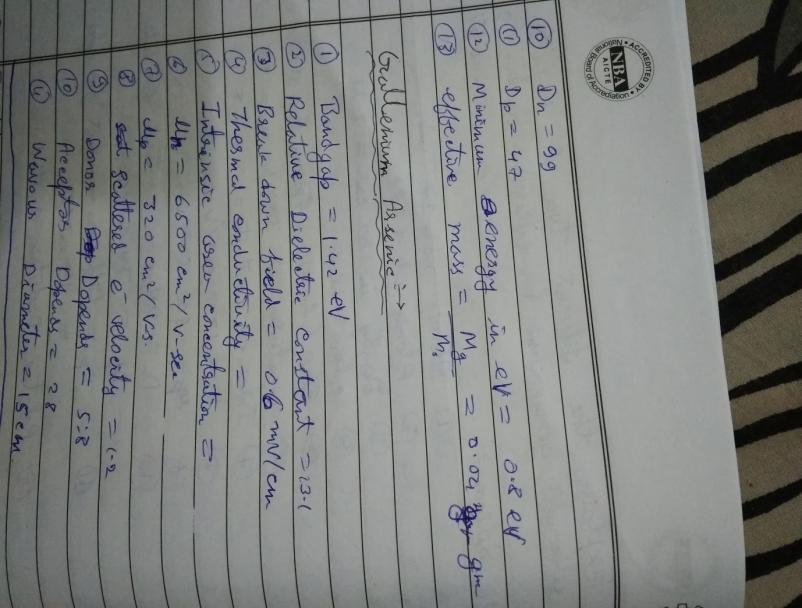 ACCREDITED BY
NBA
AICTE
National Board of Accreditation
⑩ Dn = 99
⑪ Dp = 47
⑫ Minimum energy in eV = 0.8 eV
⑬ effective mass = Mg/Ms = 0.04 gm
Gallenium Arsenic :→
① Bandgap = 1.42 eV
② Relative Dielectric Constant = 13.1
③ Break down field = 0.6 mV/cm
④ Thermal conductivity =
⑤ Intrinsic concentration =
⑥ Mn = 6500 cm²/V-sec
⑦ Mp = 320 cm²/V-s.
⑧ scattered e⁻ velocity = 1.2
⑨ Donor Dopends = 5.8
⑩ Acceptor Dopends = 28
⑪ Diameter = 15 cm